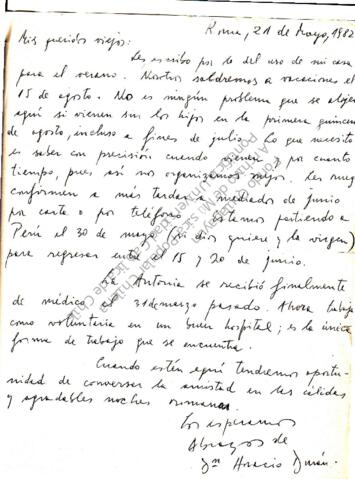 Roma, 21 de Mayo, 1982
Mis queridos viejos:
Les escribo por lo del uso de mi casa
para el verano. Nosotros saldremos a vacaciones el
15 de agosto. No es ningún problema que se alojen
aquí si vienen sin los hijos en la primera quincena
de agosto, incluso a fines de julio. Lo que necesito
es saber con precisión cuando vienen y por cuanto
tiempo, pues así nos organizamos mejor. Les ruego
confirmen a más tardar a mediados de junio
por carta o por teléfono. Estamos partiendo a
Perú el 30 de mayo (si dios quiere y la virgen)
para regresar entre el 15 y 20 de junio.
La Antonia se recibió finalmente
de médico el 31 de marzo pasado. Ahora trabaja
como voluntaria en un buen hospital; es la única
forma de trabajo que se encuentra.
Cuando estén aquí tendremos oportu-
nidad de conversar la amistad en las cálidas
y agradables noches romanas.
Los esperamos
Abrazos de
Horacio Durán.